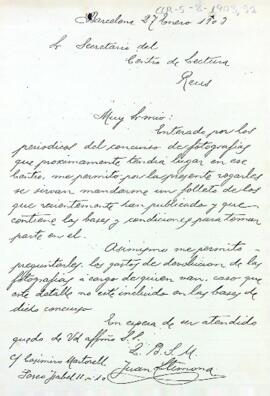 CLR-5-8-1903,32
Barcelona 27 Enero 1903
Sr Secretario del
Centro de Lectura
Reus
Muy Sr mio:
Enterado por los
periodicos del concurso de fotografias
que proximamente tendrá lugar en ese
Centro, me permito por la presente rogarles
se sirvan mandarme un folleto de los
que recientemente han publicado y que
contiene las bases y condiciones para tomar
parte en él.
Asimismo me permito
preguntarles, los gastos de devolucion de las
fotografias á cargo de quien van. caso que
este detalle no esté incluido en las bases de
dicho concurso
En espera de ser atendido
quedo de Vd affmo S.S.
Q. B. S. M.
C/ Casimiro Martorell
Juan
Paseo Isabel II